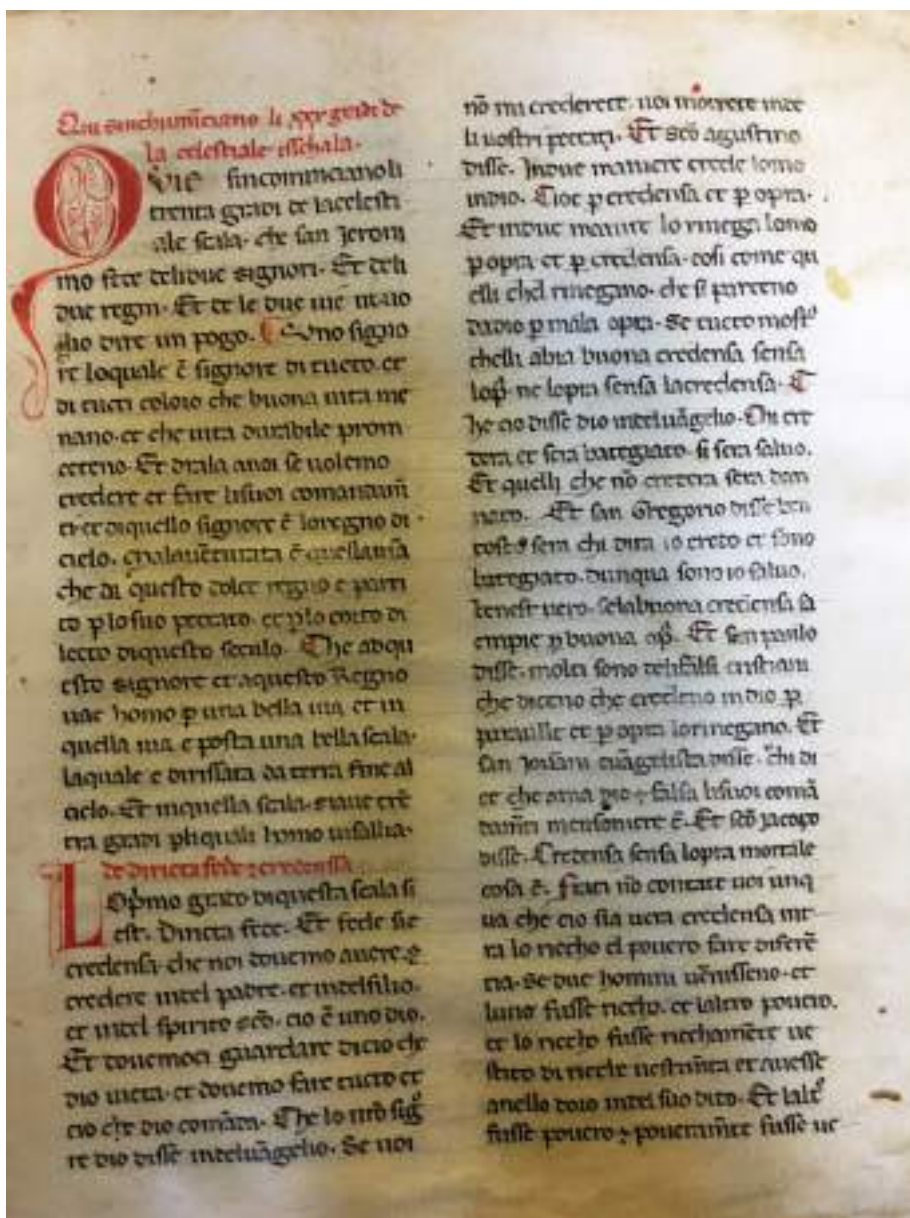 Qui sinchumĩciano li xxx gradi de
la celestiale esschala·
QVIE sincomminciano li
trenta gradi de lacelesti
ale scala· che san Jeroni
mo fece delidue signori· Et deli
due regni· Et de le due uie ui uo
glio dire un pogo· Uno signo
re loquale ẽ signore di tucto· et
di tucti coloro che buona uita me
nano· et che uita durabile prom
ecteno· Et darala anoi se uolemo
credere et fare lisuoi comandam̃
ti· et diquello signore ẽ loregno di
cielo· Malauẽturata ẽ quellaĩa
che di questo dolce regno e parti
to p lo suo peccato· et p lo corto di
lecto diquesto seculo· Che adqu
esto signore et aquesto Regno
uae homo p una bella uia et in
quella uia e posta una bella scala·
laquale e dirissata da terra fine al
cielo· Et inquella scala· siaue trẽ
ta gradi pliquali homo uisallia·
de diricta fede ⁊ credensa
LOp̃mo grado diquesta scala si
est· Diricta fede· Et fede sie
credensa· che noi douemo auere· ⁊
credere intel padre· et intelfilio·
et intel spirito sc̃o· cio ẽ uno dio·
Et douemoci guardare dicio che
dio uieta· et douemo fare tucto et
cio che dio comãda· Che lo nr̃o sig
re dio disse inteluãgelio· Se uoi
nõ mi crederete· uoi morrete inde
li uostri peccati· Et sc̃o agustino
disse· Indue maniere crede lomo
indio· Cioe p credensa et p opra·
Et indue maniere lo rinega lomo
p opra et p credensa· cosi come qu
elli chel rinegano· che si parteno
dadio p mala opra· Se tucto most
chelli abia buona credensa sensa
lop̃· ne lopra sensa lacredensa· C
he cio disse dio inteluãgelio· Chi cre
dera et sera bategiato· si sera saluo·
Et quelli che nõ credera sera dan
nato· Et san Gregorio disse ben
tosto sera chi dira io credo et sono
bategiato· dunqua sono io saluo·
benest uero· selabuona credensa sa
empie p buona op̃· Et sen paulo
disse· molti sono delifalsi cristiani
che diceno che credeno in dio p
paraulle et p opra lorinegano· Et
san Jouãni euãgelista disse· chi di
ce che ama dio ⁊ falsa lisuoi comã
dam̃ti mensoniere ẽ· Et sc̃o Jacopo
disse· Credensa sensa lopra mortale
cosa ẽ· Frati nõ contate uoi unq
ua che cio sia uera credensa int
ra lo riccho el pouero fare diferẽ
tia· Se due homini uẽnisseno· et
luno fusse riccho· et laltro pouero·
et lo riccho fusse richamẽte ue
stito di ricche uestimẽta et auesse
anello doro intel suo dito· Et lalt
fusse pouero ⁊ poueram̃te fusse ue